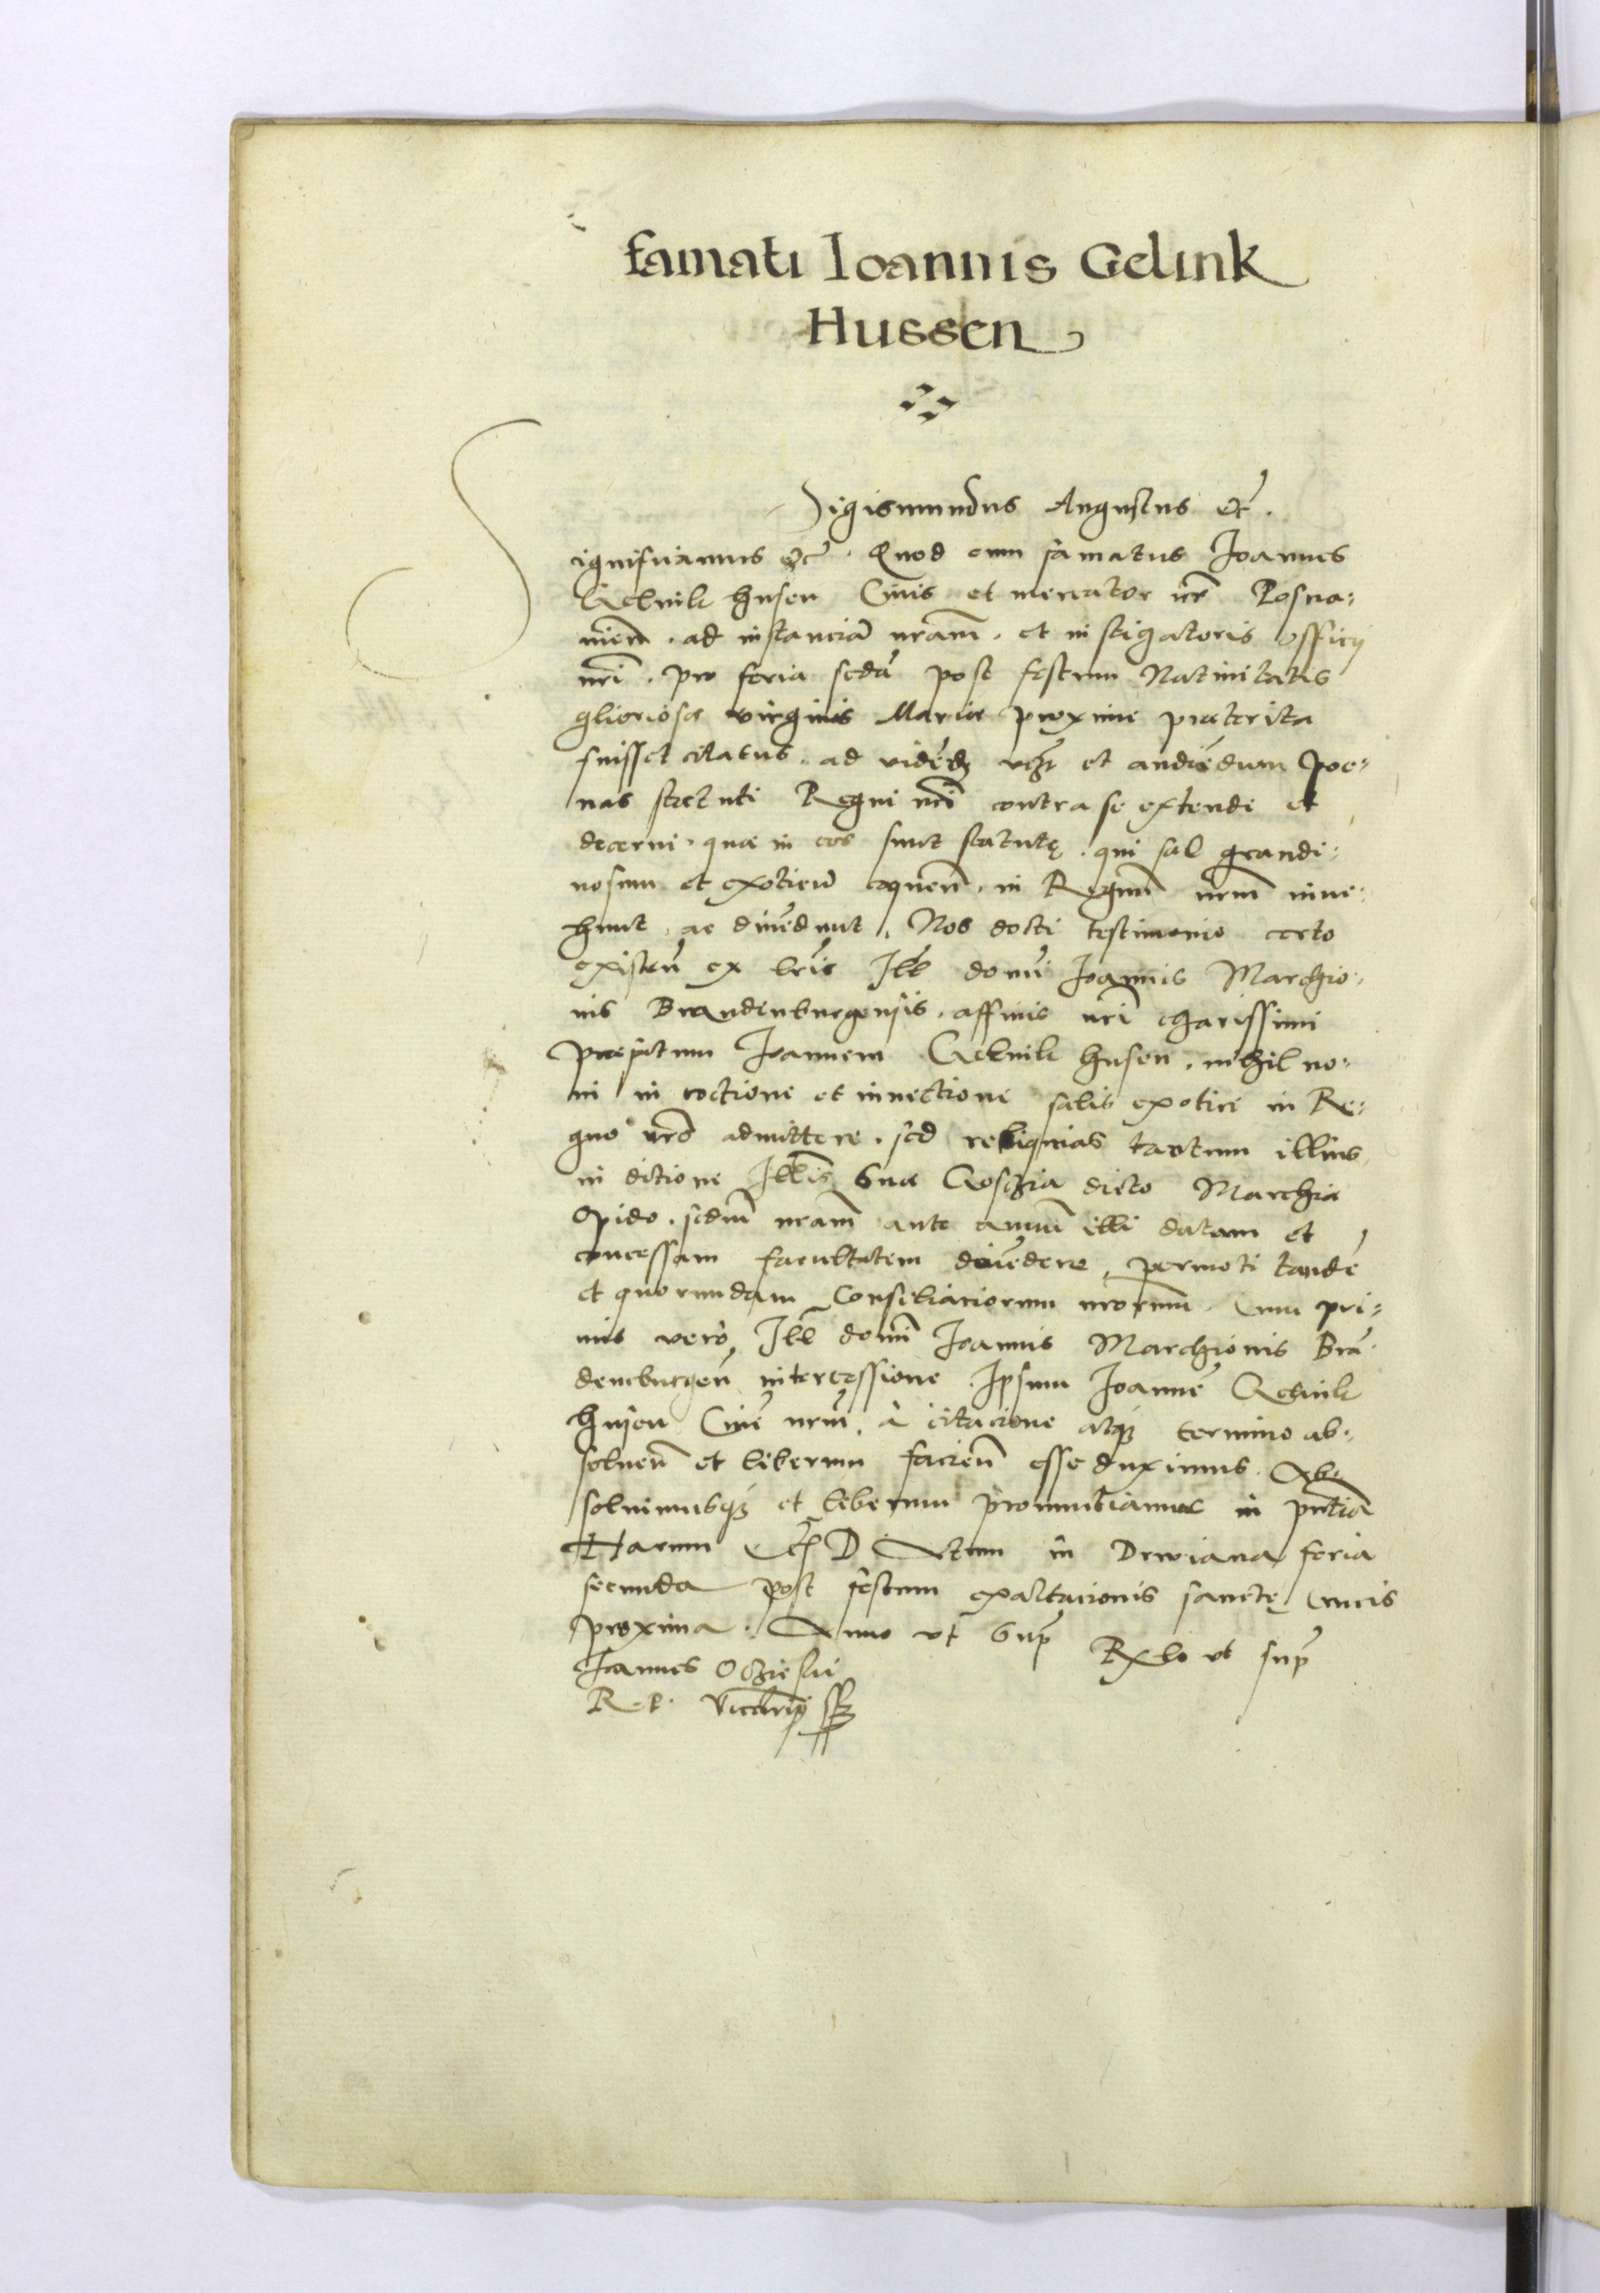 famati Ioannis Gelink
Hussen
Sigismundus Augustus etc̃.
ignificamus etc̃. Quod cum famatus Joannes
Gelnik husen Ciuis et mercator nr̃ Posna-
nien̄. ad instanciā nram̄. et instigatoris officij
nrĩ. pro feria scdã post festum Natiuitatis
glioriosæ virginis Mariæ proxime præterita
fuisset citatus. ad vidēd et audiēdum poe-
nas statuti Regni nrĩ contra se extendi et
decerni. quæ in eos sunt statutę. qui sal grandi-
nosum et exoticũ coquen̄. in Regnum̄ nrum̄ inue-
hunt, ac diuēdunt, Nos docti testimonio certo
existen̄ ex lrĩs Ill̃ domĩ Joannis Marchio-
nis Brandenburgensis. affinis nrĩ charissimi
præfatum Joannem Gelnik husen. nihil no-
ui in coctione et inuectione salis exotici in Re-
gno nrõ admittere. sed reliquias tantum illius
in ditione Ill̃mis suæ dicto Marchiæ
Opido. scdum̄ nram̄ ante annũ illi datam et
concessam facultatem diuēdere, permoti tandē
et quorundam Consiliariorum nrorum̄. Cum pri-
mis vero Ill̃ domĩ Joannis Marchionis Brā-
denburgen̄ intercessione. Ipsum Joannē Gelnik
husen Ciuē nrum̄. à citacione atq; termino ab-
soluen̄ et liberum facien̄ esse duximus. Ab-
soluimusq; et liberum pronuntiamus in pntiã
Harum etc̃ D Actum in feria
secunda post festum exaltacionis sanctę Crucis
proxima. Anno vt sup̃ Rxlo vt sup̃
Joannes Oczieski
R. P. Vicecancrius sst